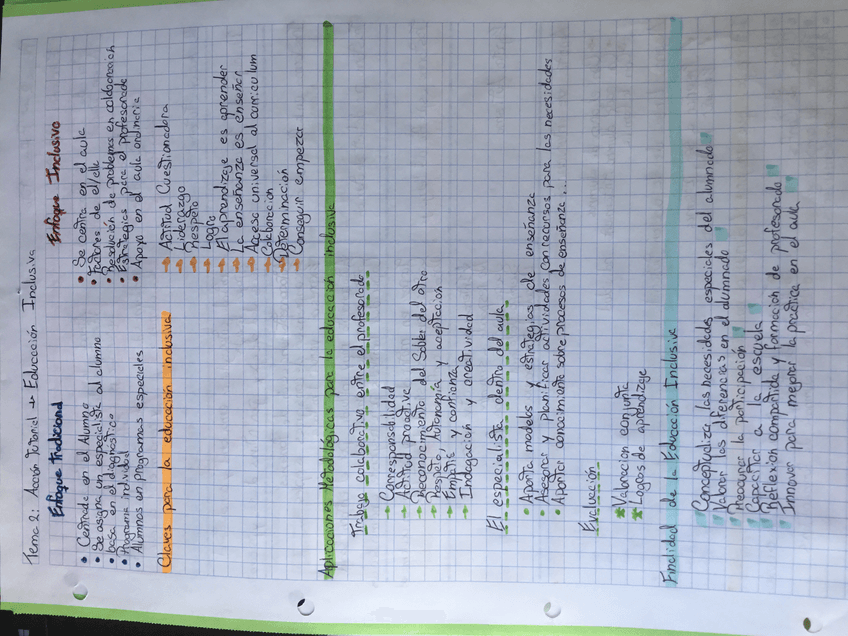 Tema 2: Acción Tutorial → Educación Inclusiva
Enfoque Tradicional
• Centrada en el Alumno
• Se asigna un especialista al alumno
• basa en el diagnóstico
• Programa individual
• Alumnos en programas especiales
Enfoque Inclusivo
• Se centra en el aula
• Factores de e/a
• Resolución de problemas en colaboración
• Estrategias para el profesorado
• Apoyo en el aula ordinaria
Claves para la educación inclusiva
→ Actitud Cuestionadora
→ Liderazgo
→ Respeto
→ Logro
→ El aprendizaje es aprender
→ La enseñanza es enseñar
→ Acceso universal al curriculum
→ Colaboración
→ Determinación
→ Conseguir empezar
Aplicaciones Metodológicas para la educación inclusiva
Trabajo colaborativo entre el profesorado
→ Corresponsabilidad
→ Actitud proactiva
→ Reconocimiento del Saber del otro
→ Respeto, Autonomía y aceptación
→ Empatía y confianza
→ Indagación y creatividad
El especialista dentro del aula
• Aporta modelos y estrategias de enseñanza
• Asesorar y planificar actividades con recursos para las necesidades
• Aportar conocimiento sobre procesos de enseñanza...
Evaluación
* Valoración conjunta
* Logros de aprendizaje
Finalidad de la Educación Inclusiva
Conceptualiza las necesidades especiales del alumnado
Valorar las diferencias en el alumnado
la participación
Capacitar a la escuela
Reflexión compartida y formación de profesorado
Innovar para mejorar la práctica en el aula